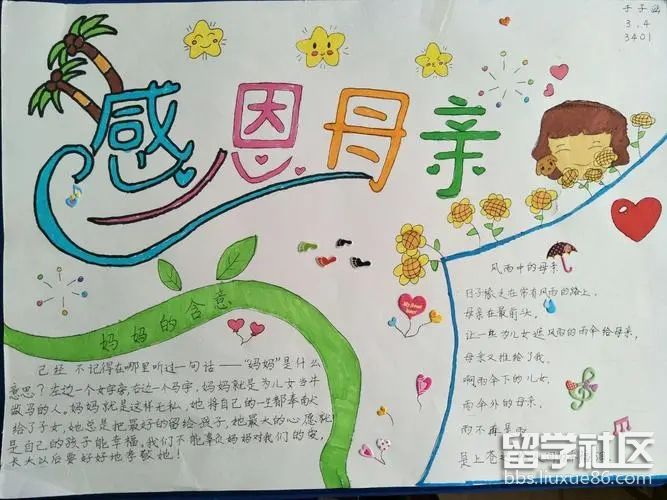 于子涵
3.4
3401
感恩母亲
妈妈的含意
已经不记得在哪里听过一句话——“妈妈”是什么
意思?左边一个女字旁,右边一个马字,妈妈就是为儿女当牛
做马的人。妈妈就是这样无私,她将自己的一生都奉献
给了子女,她总是把最好的留给孩子,她最大的心愿就
是自己的孩子能幸福,我们不能辜负妈妈对我们的爱,
长大以后要好好地孝敬她!
风雨中的母亲
日子 走在带有风雨的路上,
母亲在最前头,
让一些为儿女遮风雨的雨伞给母亲,
母亲又推给了我,
啊雨伞下的儿女,
雨伞外的母亲,
雨不再是雨
是上苍
留学社区
bbs.liuxue86.com